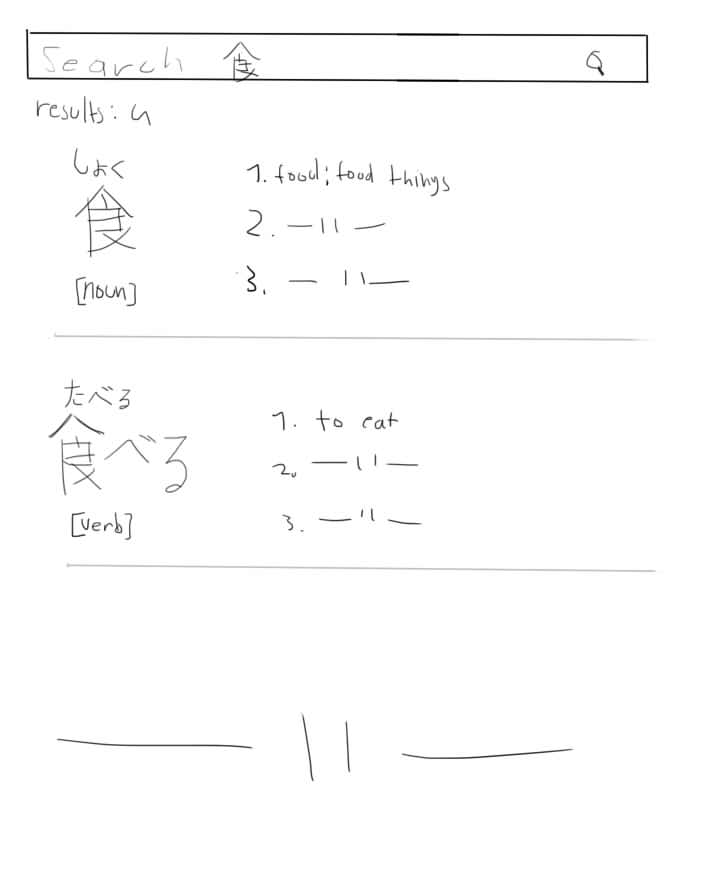 Search 食
results: 4
しょく
食
[noun]
1. food; food things
2. — 11 —
3. — 11 —
たべる
食べる
[verb]
1. to eat
2. — 11 —
3. — 11 —
— 11 —